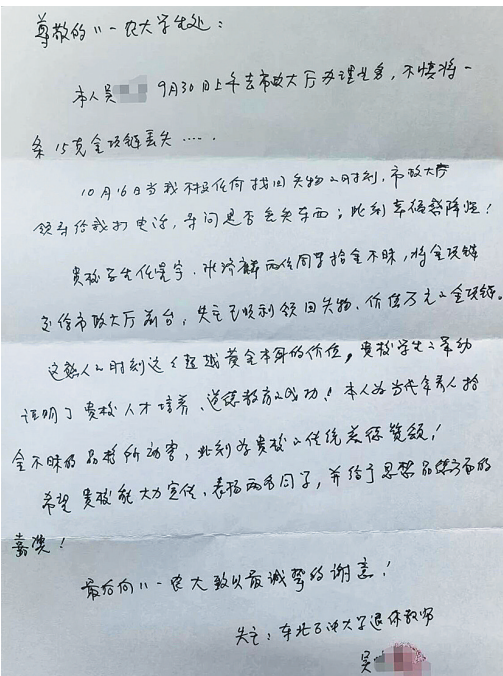 尊敬的八一农大学生处：
本人吴 9月30日上午去市政大厅办理业务，不慎将一
条15克金项链丢失……
10月16日当我不抱任何找回失物之时刻，市政大厅
领导给我打电话，寻问是否丢失东西；此刻幸福降临！
贵校学生任 宇、张 两位同学拾金不昧，将金项链
交给市政大厅前台，失主已顺利领回失物，价值万元之金项链
这感人之时刻这 超越黄金本身的价值，贵校学生之举动
证明了贵校人才培养、道德教育之成功！本人为当代年青人拾
金不昧的品格所动容，此刻为贵校之传统美德赞颂！
希望贵校能大力宣传、表扬两名同学，并给予思想品德方面的
嘉奖！
最后向八一农大致以最诚挚的谢意！
失主：东北石油大学退休教师
吴